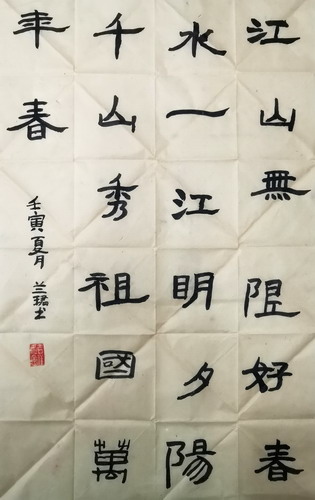 江山無限好春
水一江明夕陽
千山秀祖國萬
年春
壬寅夏月 兰珺书